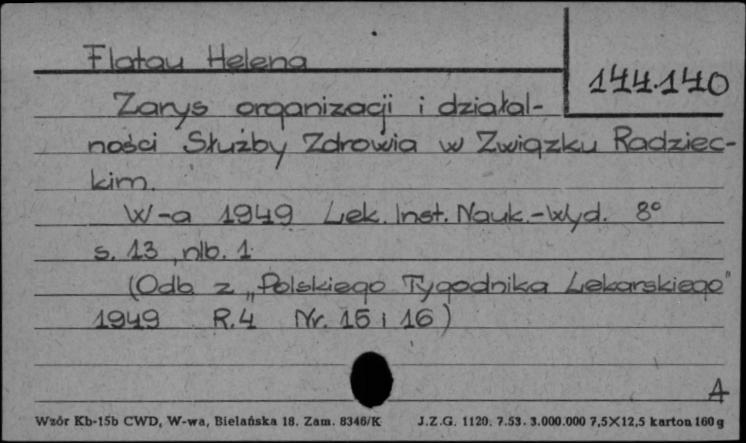 Flatau Helena
144.140
Zarys organizacji i działal-
ności Służby Zdrowia w Związku Radziec-
kim.
W-a 1949 Lek. Inst. Nauk.-Wyd. 8°
s. 13, nlb. 1.
(Odb. z „Polskiego Tygodnika Lekarskiego"
1949 R.4 Nr. 15 i 16)
A
Wzór Kb-15b CWD, W-wa, Bielańska 18. Zam. 8346/K J.Z.G. 1120. 7.53. 3.000.000 7,5×12,5 karton 160 g